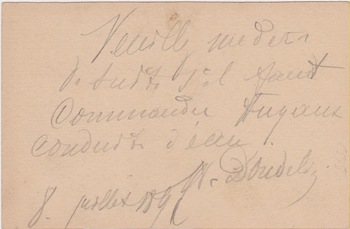 Veuille me dire
de suite s'il faut
Commander tuyaux
conduits d'eau.
8. juillet 189